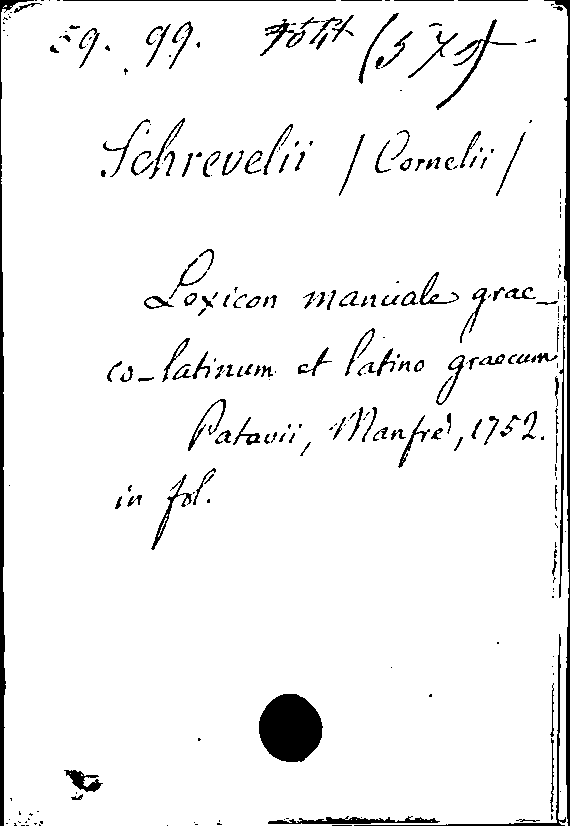 59. 99.
Schrevelii / Cornelii /
Lexicon manuale grae_
co_latinum et latino graecum
Patavii, Manfrè, 1752.
in fol.